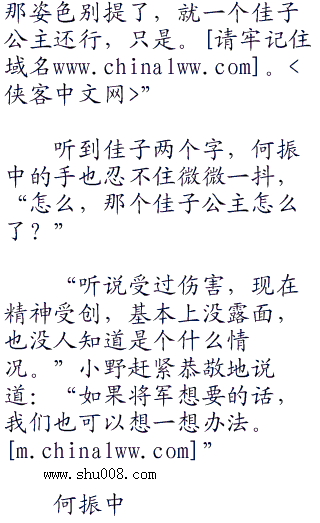 那姿色别提了，就一个佳子
公主还行，只是。[请牢记住
域名www.china1ww.com]。<
侠客中文网>”
听到佳子两个字，何振
中的手也忍不住微微一抖，
“怎么，那个佳子公主怎么
了？”
“听说受过伤害，现在
精神受创，基本上没露面，
也没人知道是个什么情
况。”小野赶紧恭敬地说
道：“如果将军想要的话，
我们也可以想一想办法。
[m.china1ww.com]”
www.shu008.com
何振中